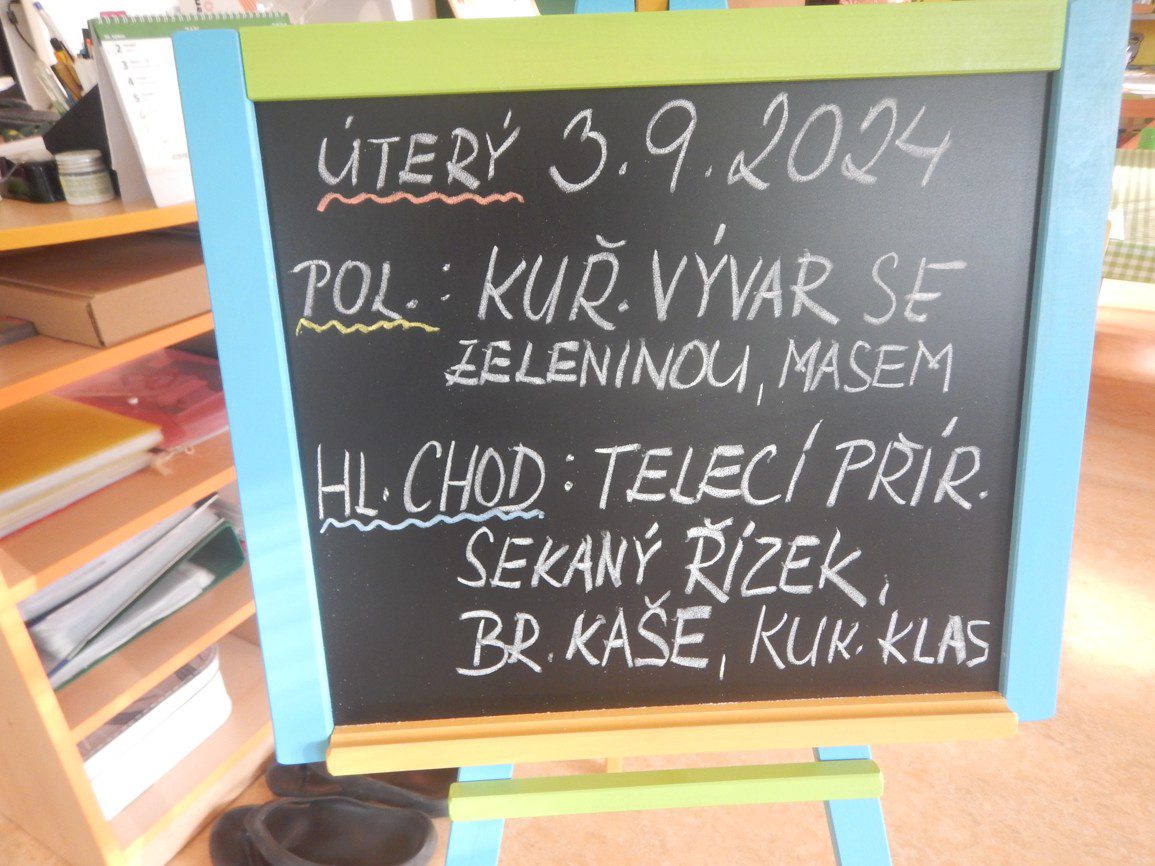 ÚTERÝ 3.9.2024
POL.: KUŘ. VÝVAR SE
ZELENINOU, MASEM
HL. CHOD: TELECÍ PŘÍR.
SEKANÝ ŘÍZEK,
BR. KAŠE, KUK. KLAS